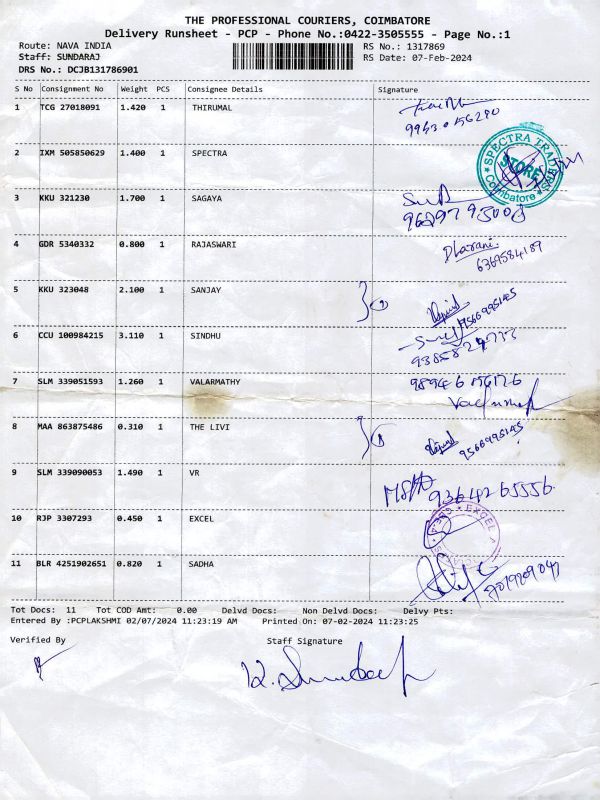 THE PROFESSIONAL COURIERS, COIMBATORE
Delivery Runsheet - PCP - Phone No.:0422-3505555 - Page No.:1
Route: NAVA INDIA RS No.: 1317869
Staff: SUNDARAJ RS Date: 07-Feb-2024
DRS No.: DCJB131786901
S No Consignment No Weight PCS Consignee Details Signature
1 TCG 27018091 1.420 1 THIRUMAL
2 IXM 505850629 1.400 1 SPECTRA
SPECTRA TRAD
STORES
Coimbatore
3 KKU 321230 1.700 1 SAGAYA
4 GDR 5340332 0.800 1 RAJASWARI Dharani
6369584189
5 KKU 323048 2.100 1 SANJAY
9566995145
6 CCU 100984215 3.110 1 SINDHU
7 SLM 339051593 1.260 1 VALARMATHY
8 MAA 863875486 0.310 1 THE LIVI
9566995145
9 SLM 339090053 1.490 1 VR
9364265556
10 RJP 3307293 0.450 1 EXCEL
EXCEL
11 BLR 4251902651 0.820 1 SADHA
Tot Docs: 11 Tot COD Amt: 0.00 Delvd Docs: Non Delvd Docs: Delvy Pts:
Entered By :PCPLAKSHMI 02/07/2024 11:23:19 AM Printed On: 07-02-2024 11:23:25
Verified By Staff Signature